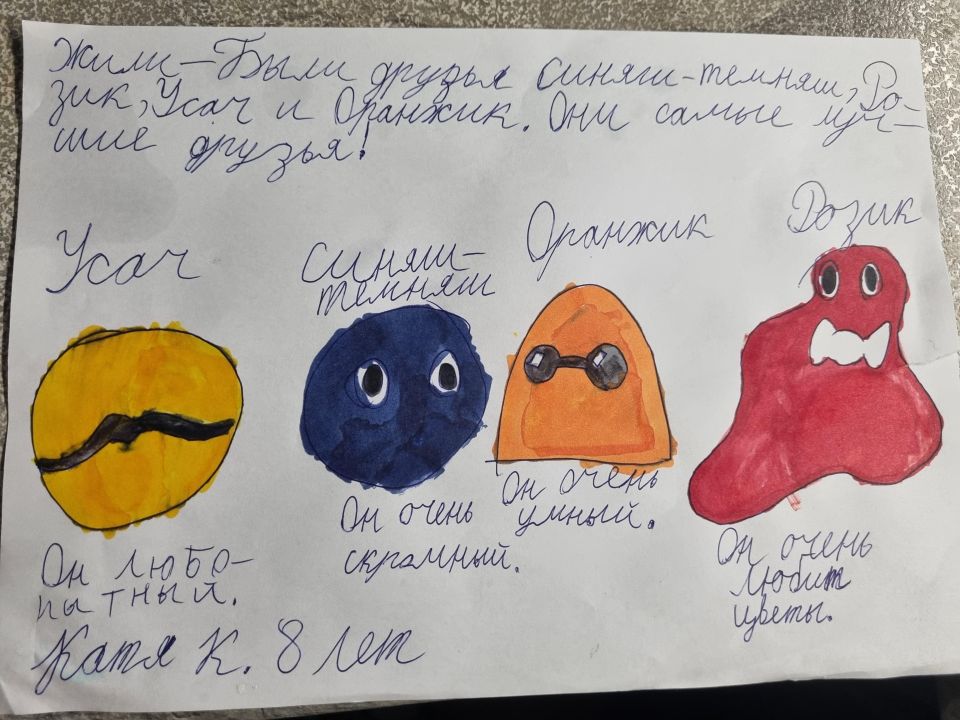 Жили-Были друзья Синяш-темняш, Ро-
зик, Усач и Оранжик. Они самые луч-
шие друзья!
Усач
Синяш-
темняш
Оранжик
Розик
Он любо-
пытный.
Он очень
скромный.
Он очень
умный.
Он очень
любит
цветы.
Катя К. 8 лет